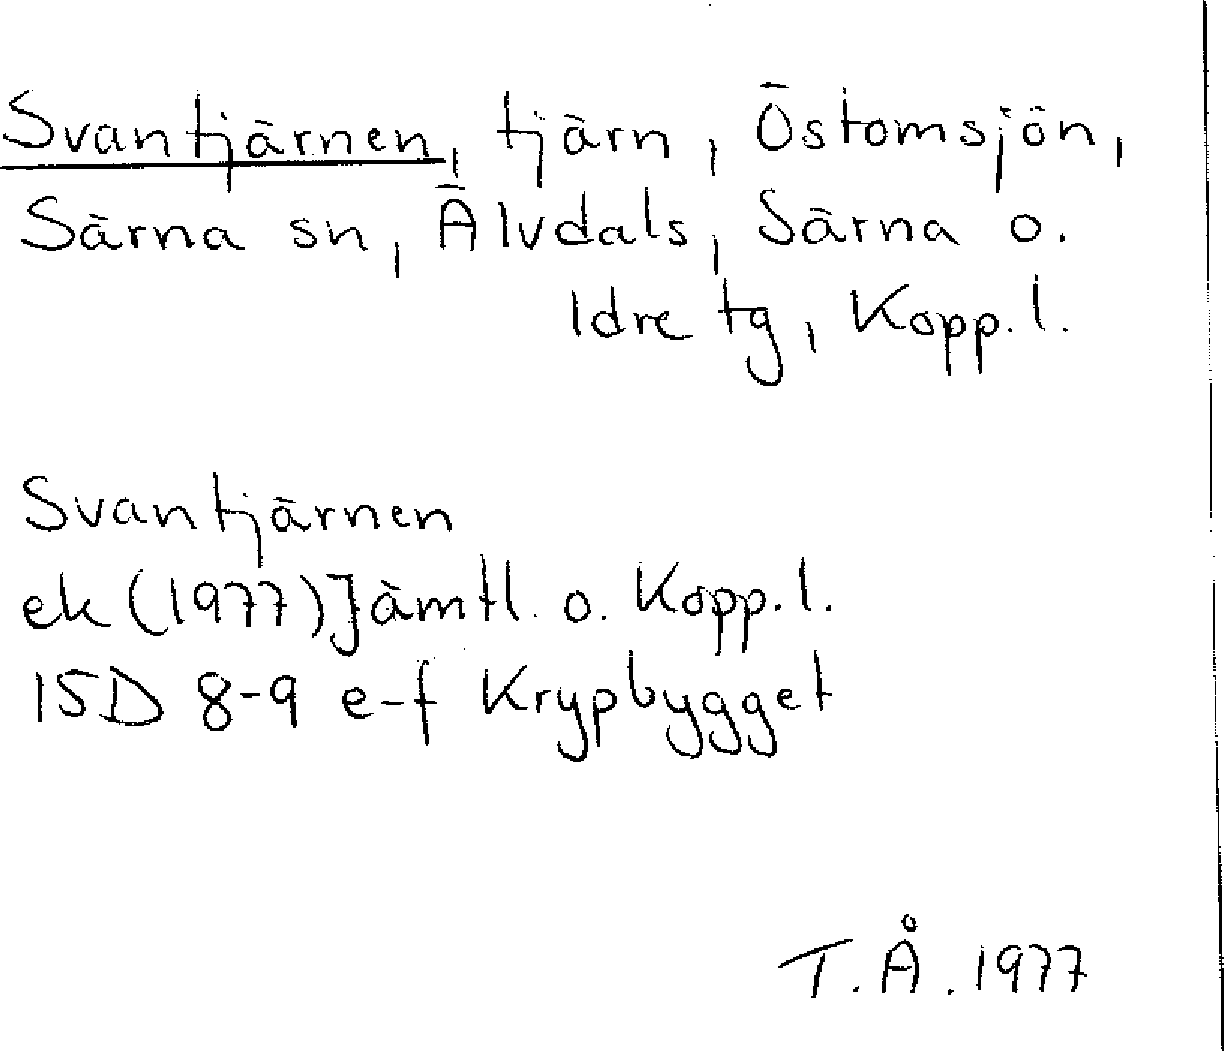 Svantjärnen, tjärn, Östomsjön,
Särna sn, Älvdals, Särna o.
Idre tg, Kopp. l.
Svantjärnen
ek (1977) Jämtl. o. Kopp. l.
15D 8-9 e-f Krypbygget
T.Å. 1977